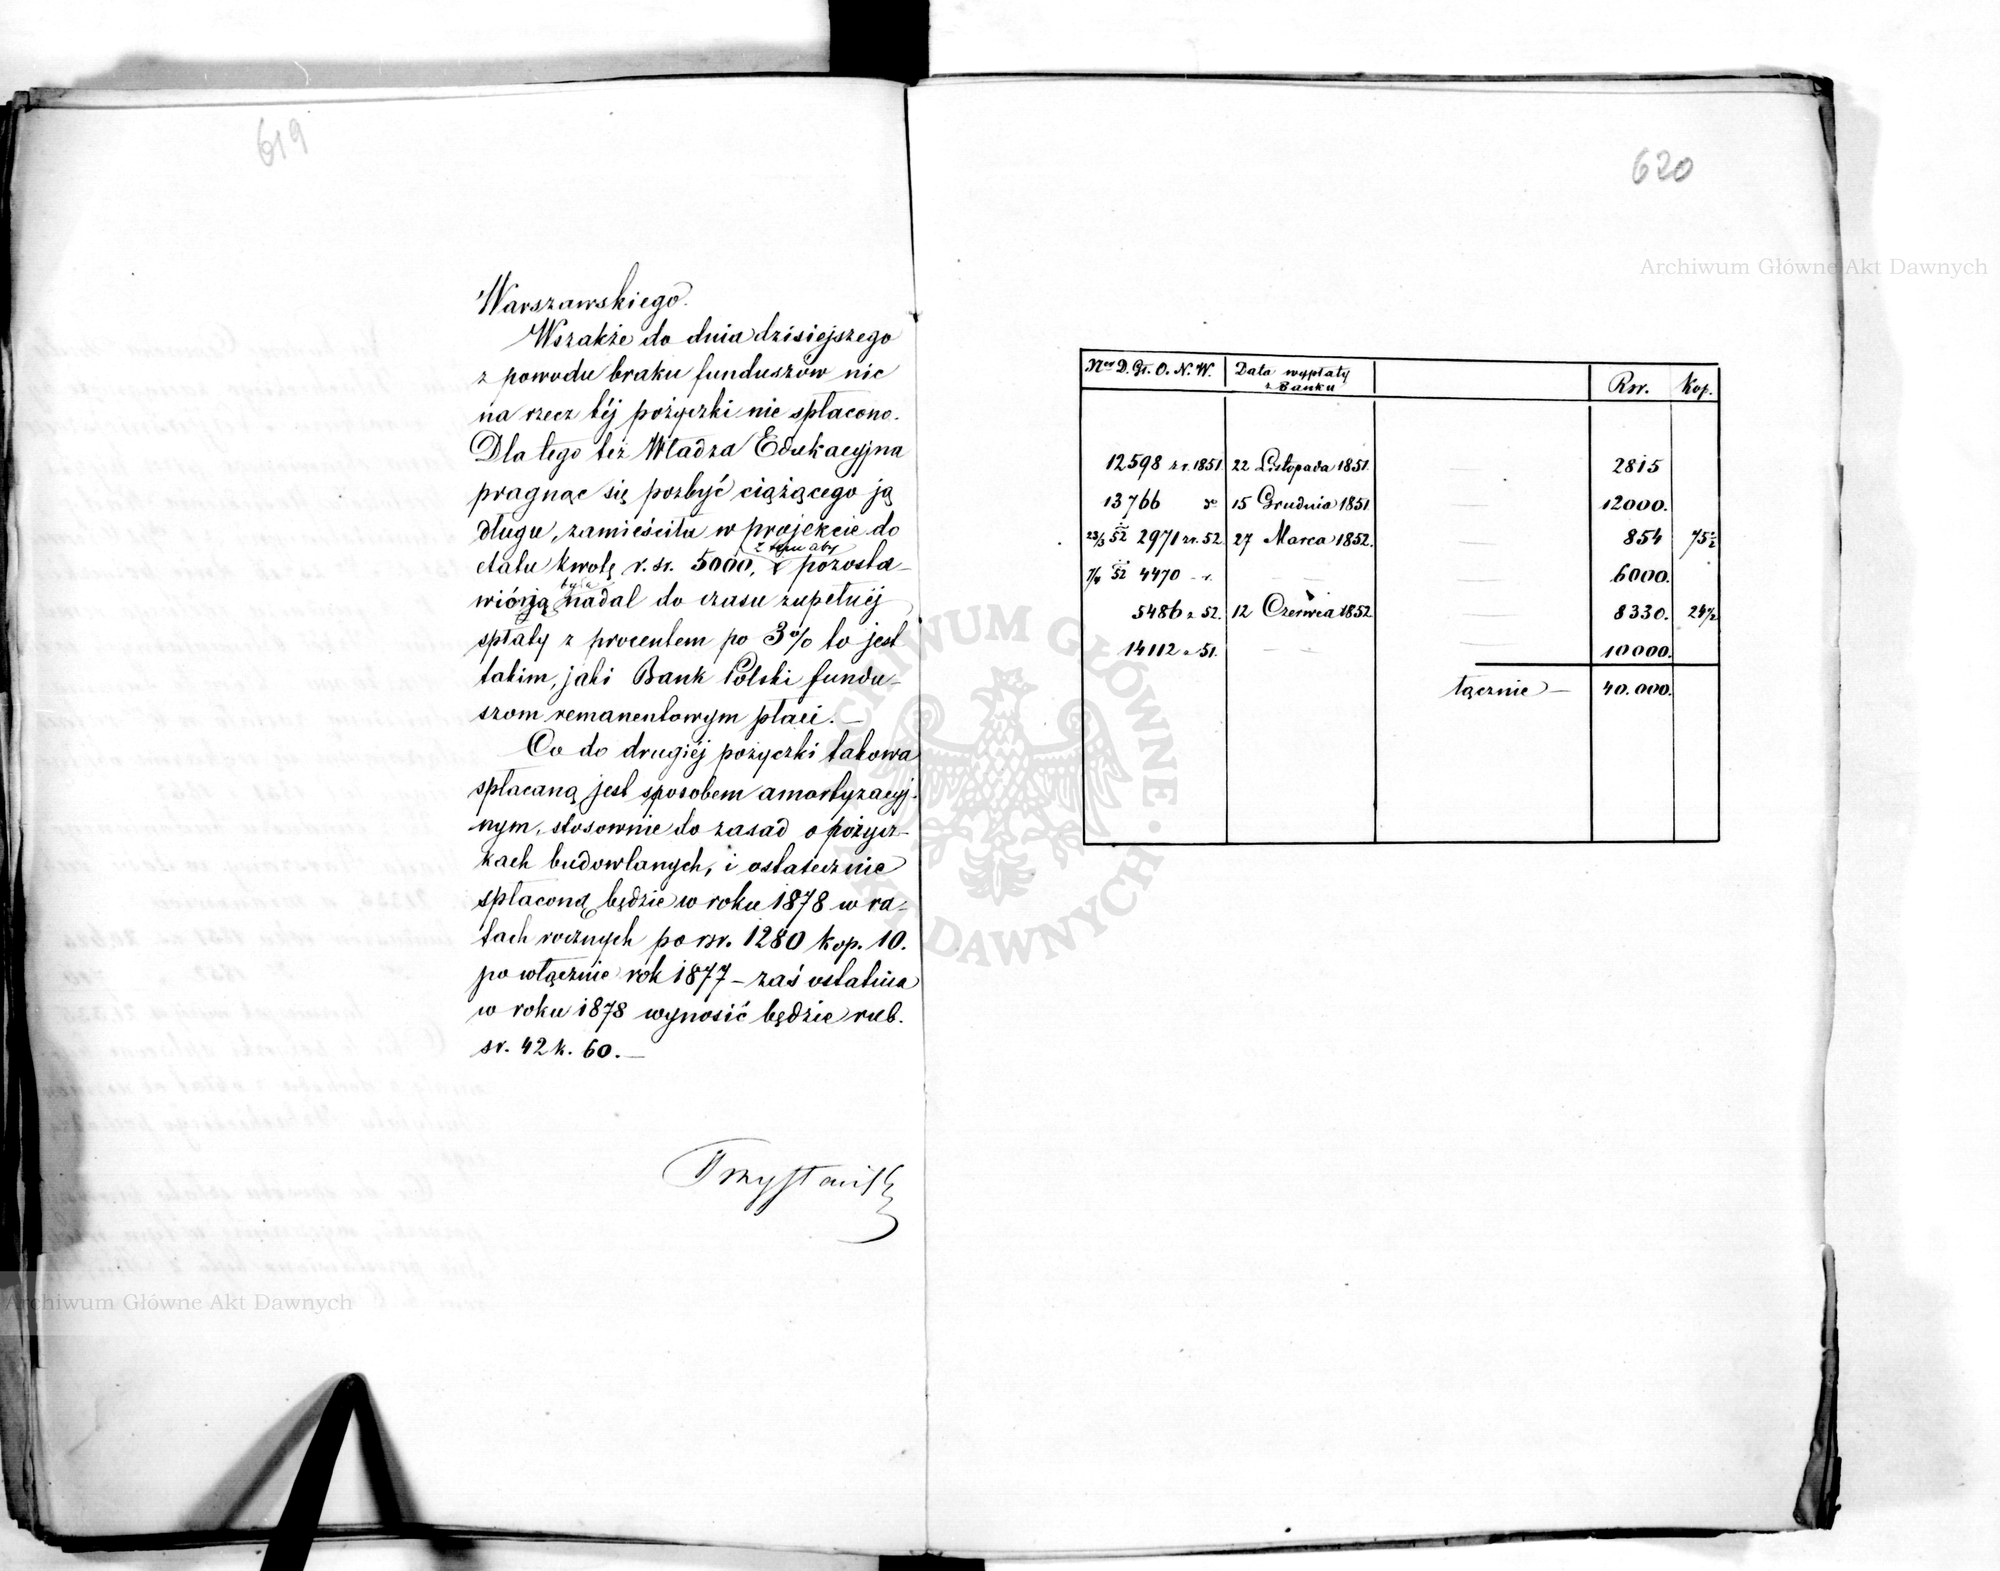 619
Warszawskiego.
Wszakże do dnia dzisiejszego
z powodu braku funduszów nic
na rzecz téj pożyczki nie spłacono.
Dla tego też Władza Edukacyjna
pragnąc się pozbyć ciążącego ją
długu, zamieściła w projekcie do
z tém aby
etatu kwotę r. sr. 5000, pozosta-
była
wioną nadal do czasu zupełnéj
spłaty z procentem po 3% to jest
takim, jaki Bank Polski fundu-
szom remanentowym płaci. —
Co do drugiéj pożyczki takowa
spłacaną jest sposobem amortyzacyj-
nym, stosownie do zasad o pożycz-
kach budowlanych, i ostatecznie
spłaconą będzie w roku 1878 w ra-
tach rocznych po rsr. 1280 kop. 10.
po włącznie rok 1877 – zaś ostatnia
w roku 1878 wynosić będzie rub.
sr. 42 k. 60. —
620
Archiwum Główne Akt Dawnych
Ner D. Gł. O. N. W. Data wypłaty z Banku Rsr. Kop.
12598 z r. 1851 22 Listopada 1851. 2815
13766 do 15 Grudnia 1851 12000.
23/3 52 2971 z r. 52. 27 Marca 1852. 854 75½
7/4 52 4470 6000.
5486 z 52. 12 Czerwca 1852 8330. 24½
14112 z 51. 10000.
łącznie — 40.000.
ARCHIWUM GŁÓWNE AKT DAWNYCH
Archiwum Główne Akt Dawnych